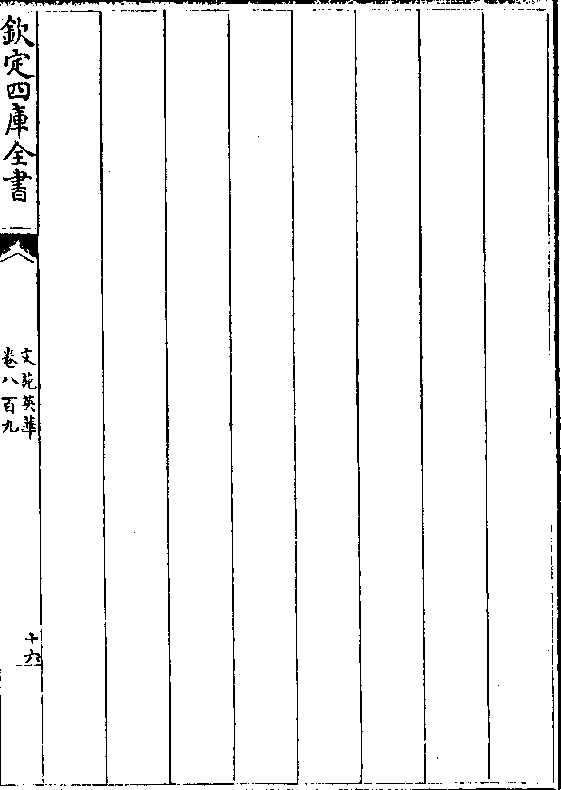 欽定四庫全書
文苑英華
卷八百九
十六